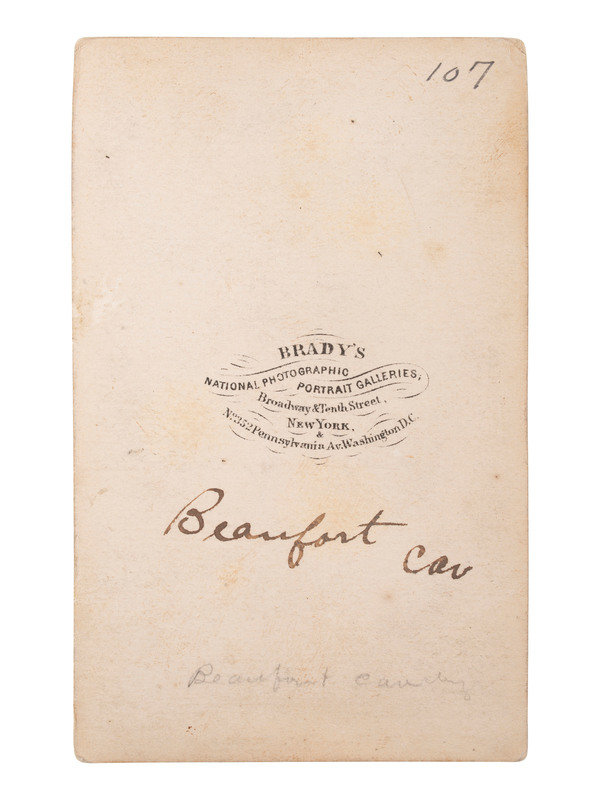 107
BRADY'S
NATIONAL PHOTOGRAPHIC PORTRAIT GALLERIES,
Broadway & Tenth Street,
NEW YORK,
&
No. 352 Pennsylvania Av. Washington D.C.
Beaufort
Cav
Beaufort